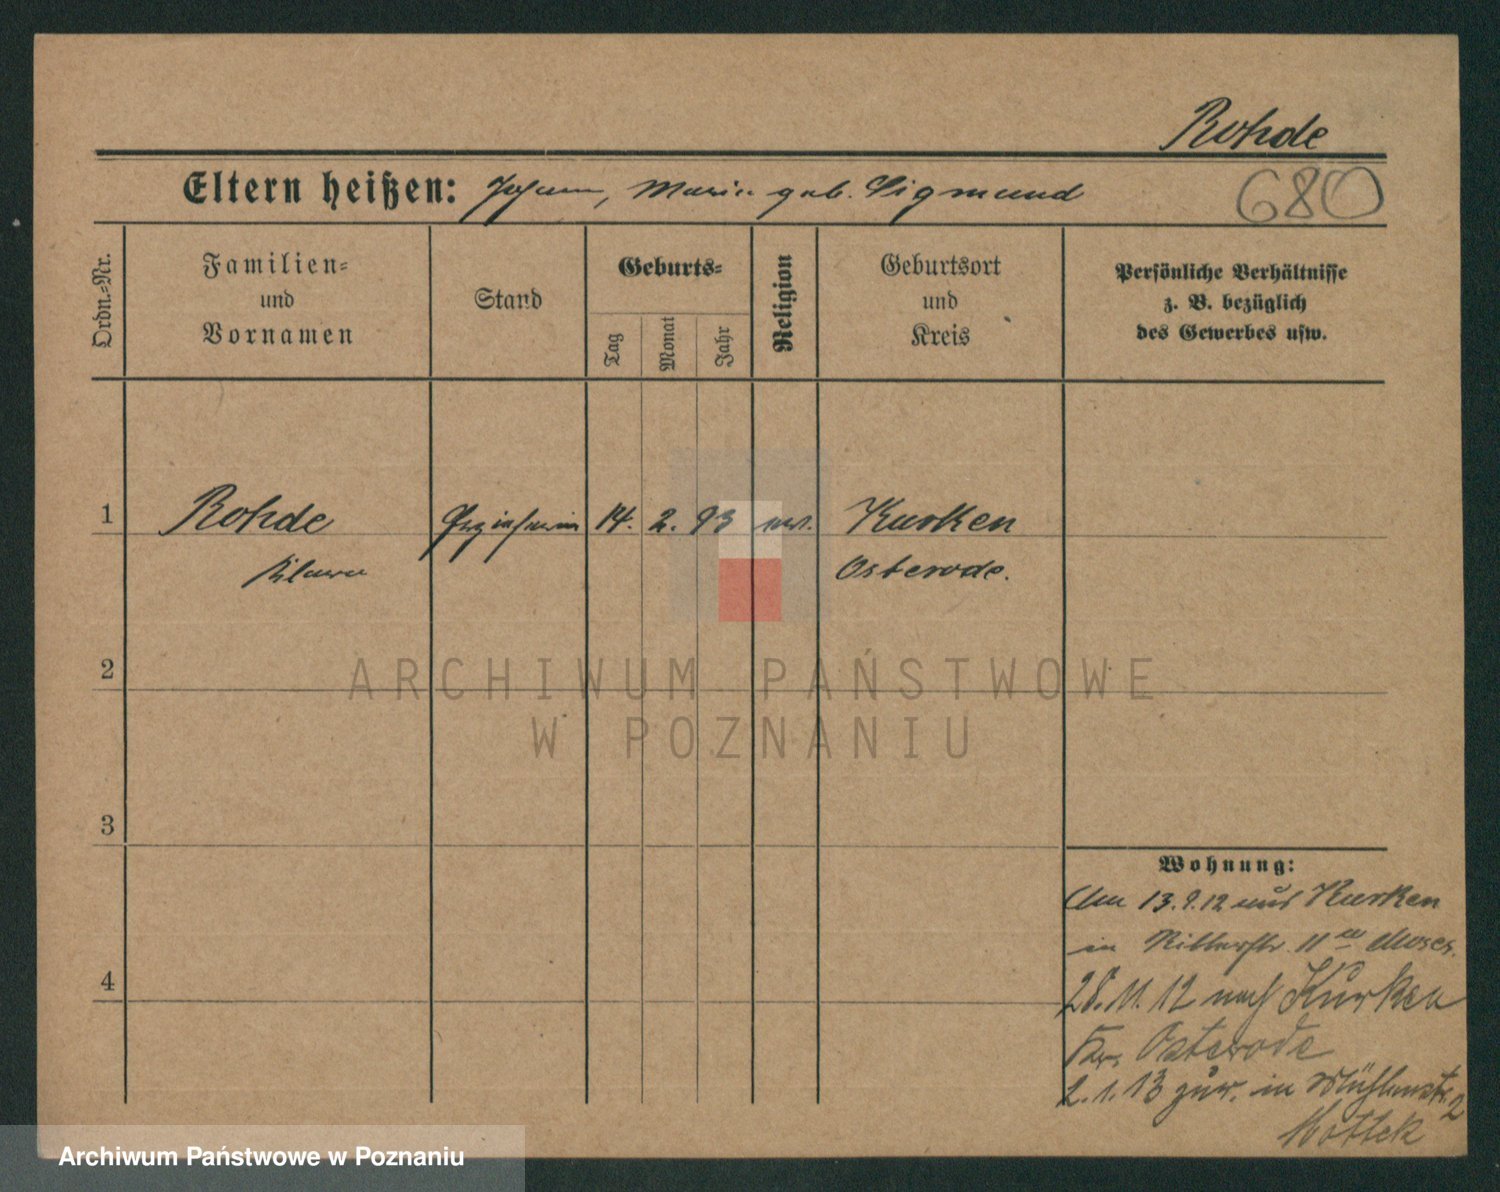 Rohde
Eltern heißen: Johann, Marie geb. Sigmund
680
Ordn.-Nr.
Familien-
und
Vornamen
Stand
Geburts-
Tag
Monat
Jahr
Religion
Geburtsort
und
Kreis
Persönliche Verhältnisse
z. B. bezüglich
des Gewerbes usw.
1
Rohde
Erzieherin
14. 2. 93
Kurken
Osterode.
2
ARCHIWUM PAŃSTWOWE
W POZNANIU
3
4
Wohnung:
Am 13.9.12 aus Kurken
in Ritterstr. 11 Moses.
28.11.12 nach Kurken
Kr. Osterode
2.1.13 zur. in Mühlenstr. 2
Mottek
Archiwum Państwowe w Poznaniu